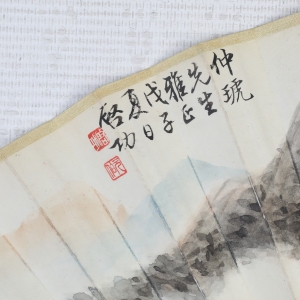 仲琥
先生
雅正
戊子
夏日
啓功